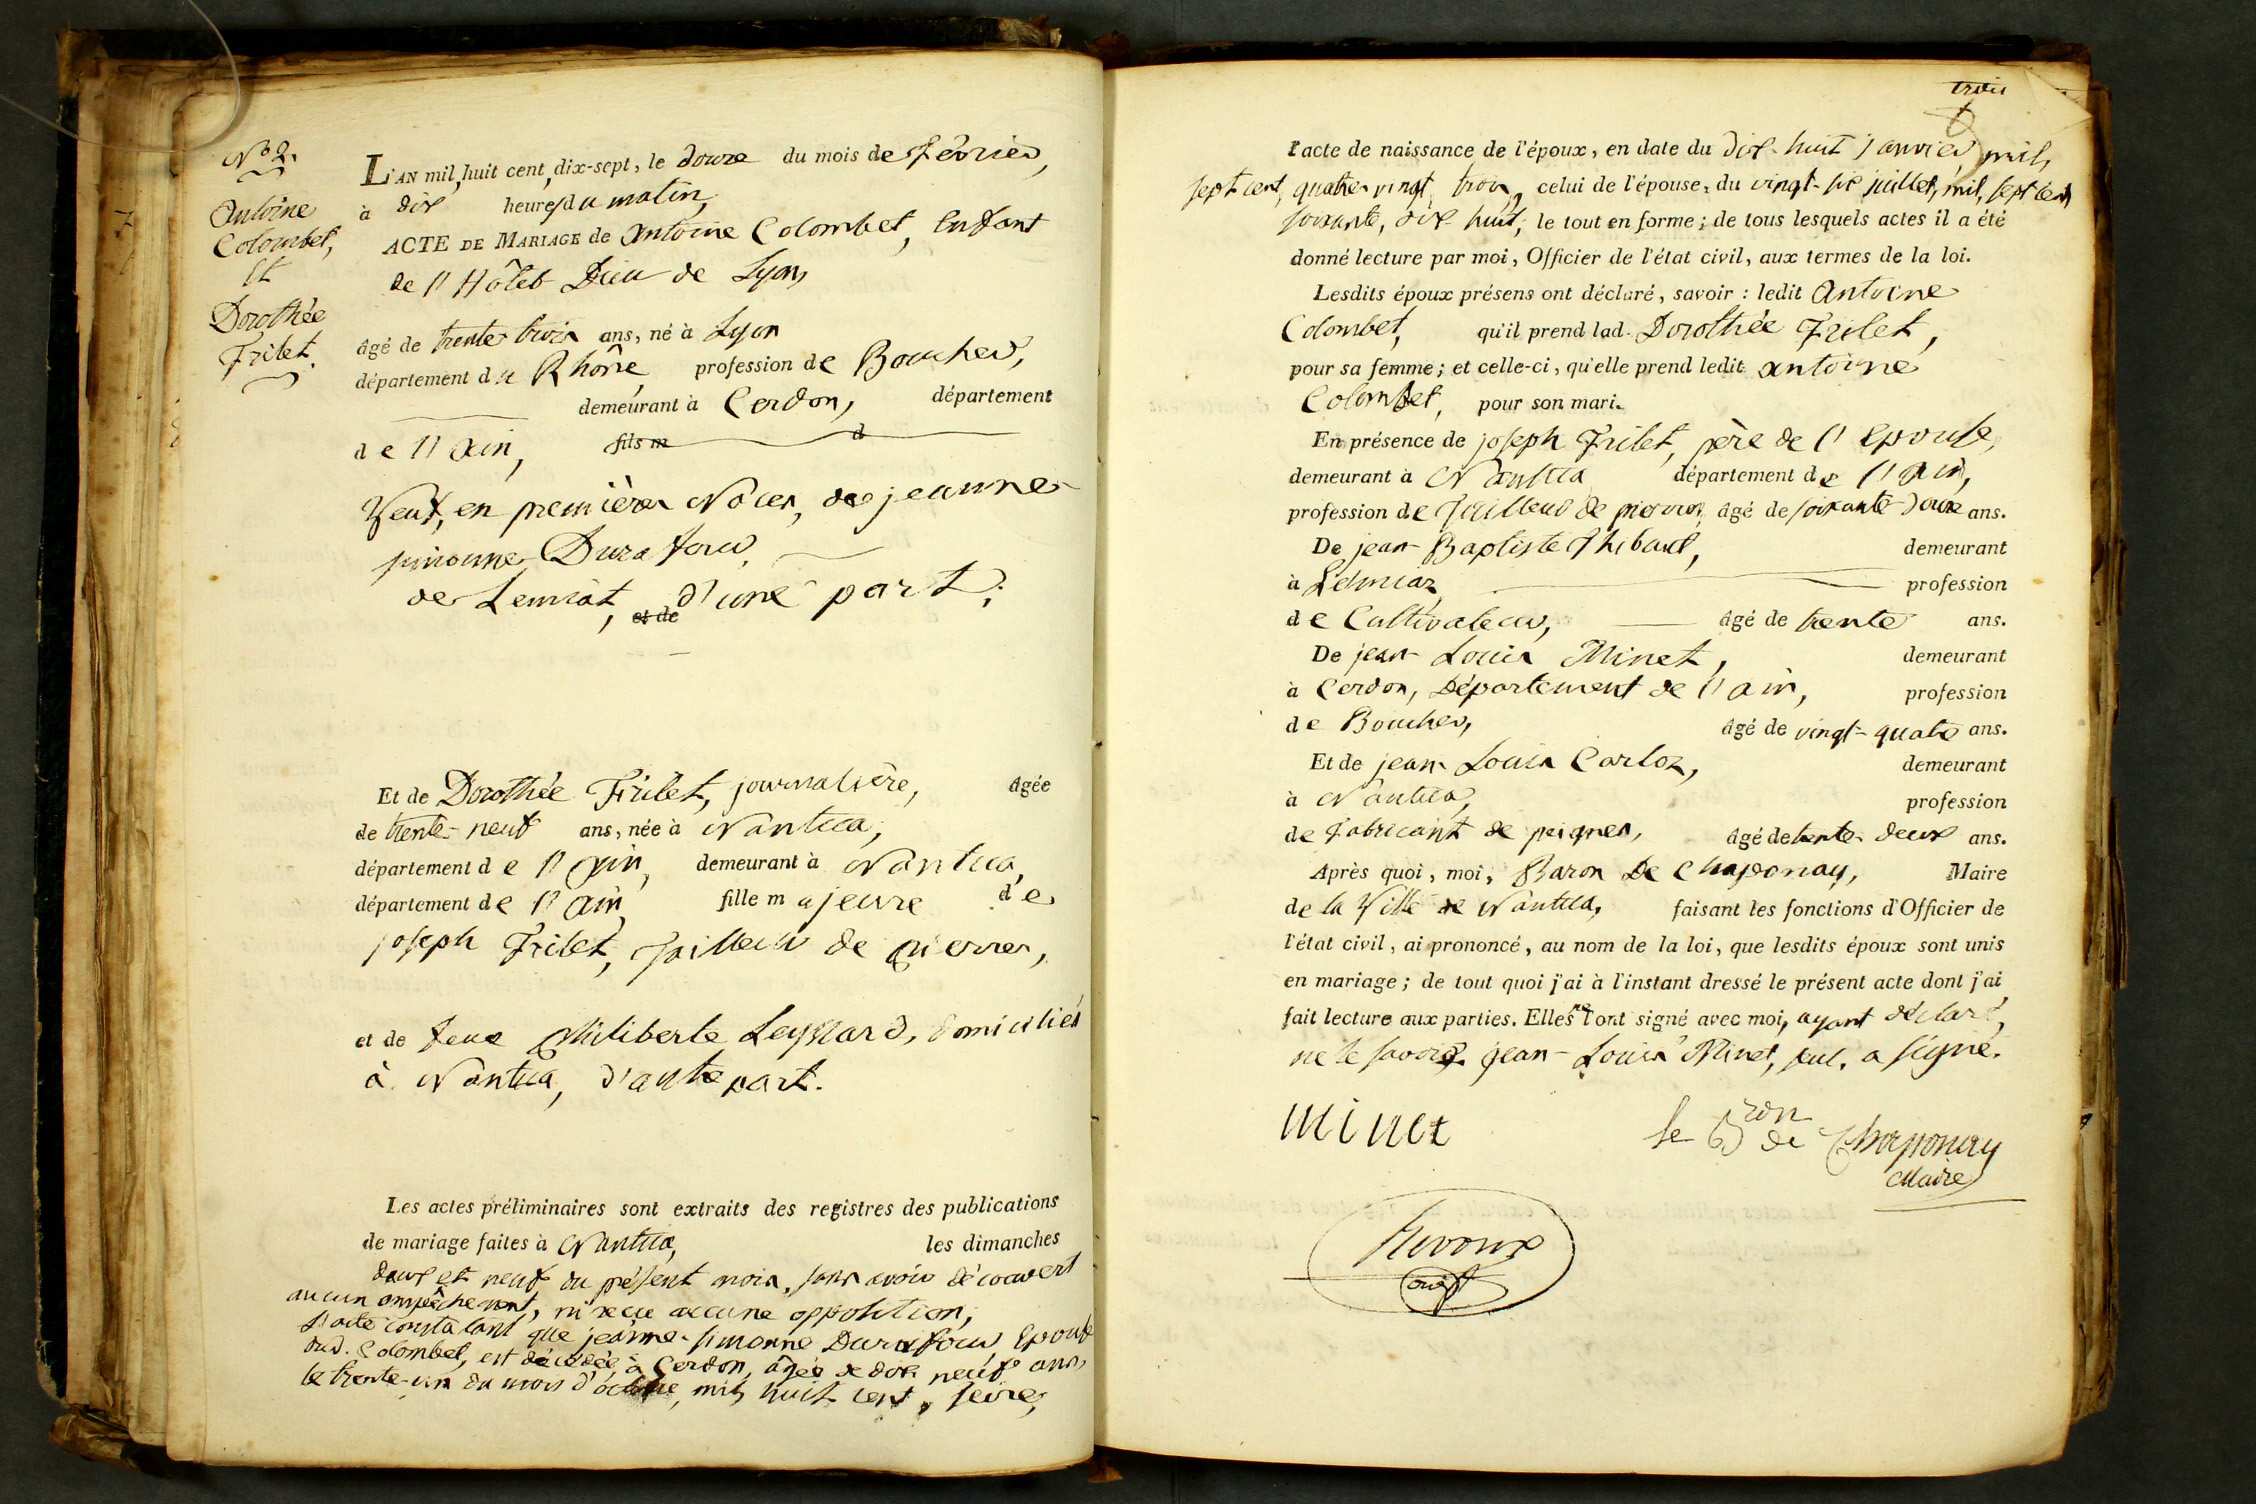 N.º 2.
Antoine
Colombet,
Et
Dorothée
Frilet.
L'AN mil, huit cent, dix-sept, le douze du mois de février,
à dix heures du matin,
ACTE DE MARIAGE de Antoine Colombet, Enfant
de l'Hôtel Dieu de Lyon,
âgé de trente trois ans, né à Lyon
département du Rhône, profession de Boucher,
demeurant à Cerdon, département
de l'Ain, fils m d
Veuf, en premières Nôces, de jeanne
simonne Durafour,
de Lemiat, et de d'une part;
Et de Dorothée Frilet, journalière, âgée
de trente-neuf ans, née à Nantua,
département de l'Ain, demeurant à Nantua,
département de l'Ain, fille majeure de
joseph Frilet, Tailleur de pierres,
et de feue Philiberte Leyssard, domiciliés
à Nantua, d'autre part.
Les actes préliminaires sont extraits des registres des publications
de mariage faites à Nantua, les dimanches
deux et neuf du présent mois, sans avoir découvert
aucun empêchement, ni reçu aucune opposition,
l'acte constatant que jeanne-simonne Durafour, Epouse
dud. Colombet, est décédée à Cerdon, âgée de dix neuf ans,
le trente-un du mois d'octobre, mil, huit cent, seize,
trois
l'acte de naissance de l'époux, en date du dix-huit janvier mil,
sept cent, quatre vingt, trois, celui de l'épouse, du vingt-six juillet, mil, sept cent,
soixante, dix huit, le tout en forme; de tous lesquels actes il a été
donné lecture par moi, Officier de l'état civil, aux termes de la loi.
Lesdits époux présens ont déclaré, savoir : ledit Antoine
Colombet, qu'il prend lad. Dorothée Frilet,
pour sa femme; et celle-ci, qu'elle prend ledit antoine
Colombet, pour son mari.
En présence de joseph Frilet, père de l'epouse,
demeurant à Nantua département de l'Ain,
profession de Tailleur de pierres, âgé de soixante-douze ans.
De jean-Baptiste Thibaud, demeurant
à Lelmiaz, profession
de Cultivateur, âgé de trente ans.
De jean-Louis Minet, demeurant
à Cerdon, Département de l'ain, profession
de Boucher, âgé de vingt-quatre ans.
Et de jean-Louis Carloz, demeurant
à Nantua, profession
de fabricant de peignes, âgé de trente-deux ans.
Après quoi, moi, Baron De Chaponay, Maire
de la Ville de Nantua, faisant les fonctions d'Officier de
l'état civil, ai prononcé, au nom de la loi, que lesdits époux sont unis
en mariage; de tout quoi j'ai à l'instant dressé le présent acte dont j'ai
fait lecture aux parties. Elles ne l'ont signé avec moi, ayant déclaré,
ne le savoir. jean-Louis Minet, seul, a signé.
minet
le Bron de Chaponay
Maire